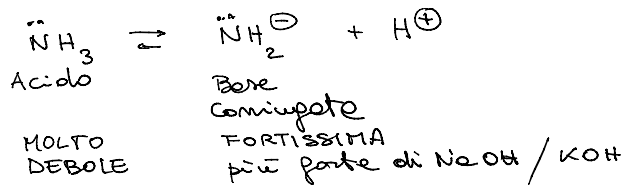 N̈H₃ ⇌ N̈H₂⊖ + H⊕
Acido Base
coniugata
MOLTO FORTISSIMA
DEBOLE più forte di NaOH / KOH